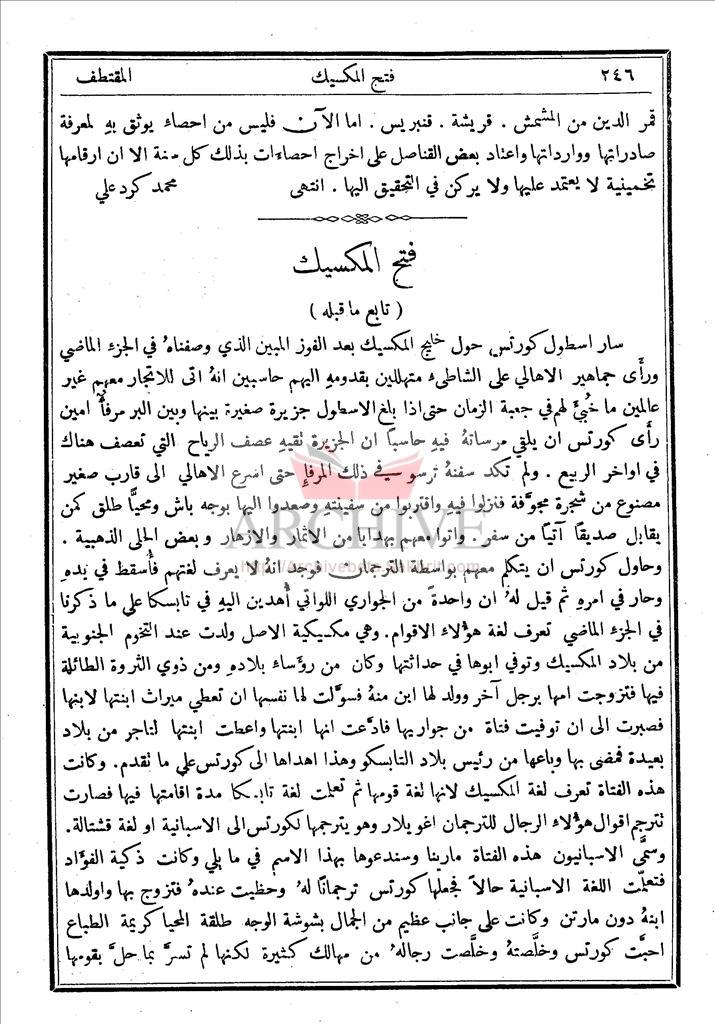 ٢٤٦ فتح المكسيك المقتطف
قمر الدين من المشمش . قريشة . قنبريس . اما الآن فليس من احصاء يوثق بهِ لمعرفة
صادراتها ووارداتها واعتاد بعض القناصل على اخراج احصاءات بذلك كل سنة الا ان ارقامها
تخمينية لا يعتمد عليها ولا يركن في التحقيق اليها . انتهى محمد كرد علي
فتح المكسيك
( تابع ما قبله )
سار اسطول كورتس حول خليج المكسيك بعد الفوز المبين الذي وصفناهُ في الجزء الماضي
ورأَى جماهير الاهالي على الشاطىء متهللين بقدومهِ اليهم حاسبين انهُ اتى للاتجار معهم غير
عالمين ما خُبِّئَ لهم في جعبة الزمان حتى اذا بلغ الاسطول جزيرة صغيرة بينها وبين البر مرفأٌ امين
رأَى كورتس ان يلقي مرساتهُ فيهِ حاسباً ان الجزيرة تقيهِ عصف الرياح التي تعصف هناك
في اواخر الربيع . ولم تكد سفنهُ ترسو في ذلك المرفإِ حتى اسرع الاهالي الى قارب صغير
مصنوع من شجرة مجوَّفة فنزلوا فيهِ واقتربوا من سفينتهِ وصعدوا اليها بوجه باش ومحيًّا طلق كمن
يقابل صديقاً آتياً من سفر . واتوا معهم بهدايا من الاثمار والازهار وبعض الحلى الذهبية .
ARCHIVE
وحاول كورتس ان يتكلم معهم بواسطة الترجمان فوجد انهُ لا يعرف لغتهم فأُسقط في يدهِ
وحار في امرهِ ثم قيل لهُ ان واحدة من الجواري اللواتي أُهدين اليهِ في تابسكا على ما ذكرنا
في الجزء الماضي تعرف لغة هؤلاء الاقوام . وهي مكسيكية الاصل ولدت عند التخوم الجنوبية
من بلاد المكسيك وتوفي ابوها في حداثتها وكان من رؤساء بلادهِ ومن ذوي الثروة الطائلة
فيها فتزوجت امها برجل آخر وولد لها ابن منهُ فسوَّلت لها نفسها ان تعطي ميراث ابنتها لابنها
فصبرت الى ان توفيت فتاة من جواريها فادَّعت انها ابنتها واعطت ابنتها لتاجر من بلاد
بعيدة فمضى بها وباعها من رئيس بلاد التابسكو وهذا اهداها الى كورتس على ما تقدم . وكانت
هذه الفتاة تعرف لغة المكسيك لانها لغة قومها ثم تعلمت لغة تابسكا مدة اقامتها فيها فصارت
تترجم اقوال هؤلاء الرجال للترجمان اغويلار وهو يترجمها لكورتس الى الاسبانية او لغة قشتالة .
وسمَّى الاسبانيون هذه الفتاة مارينا وسندعوها بهذا الاسم في ما يلي وكانت ذكية الفؤاد
فتعلمت اللغة الاسبانية حالاً فجعلها كورتس ترجماناً لهُ وحظيت عندهُ فتزوج بها واولدها
ابنهُ دون مارتن وكانت على جانب عظيم من الجمال بشوشة الوجه طلقة المحيا كريمة الطباع
احبَّت كورتس وخلَّصتهُ وخلَّصت رجالهُ من مهالك كثيرة لكنها لم تسرَّ بما حلَّ بقومها